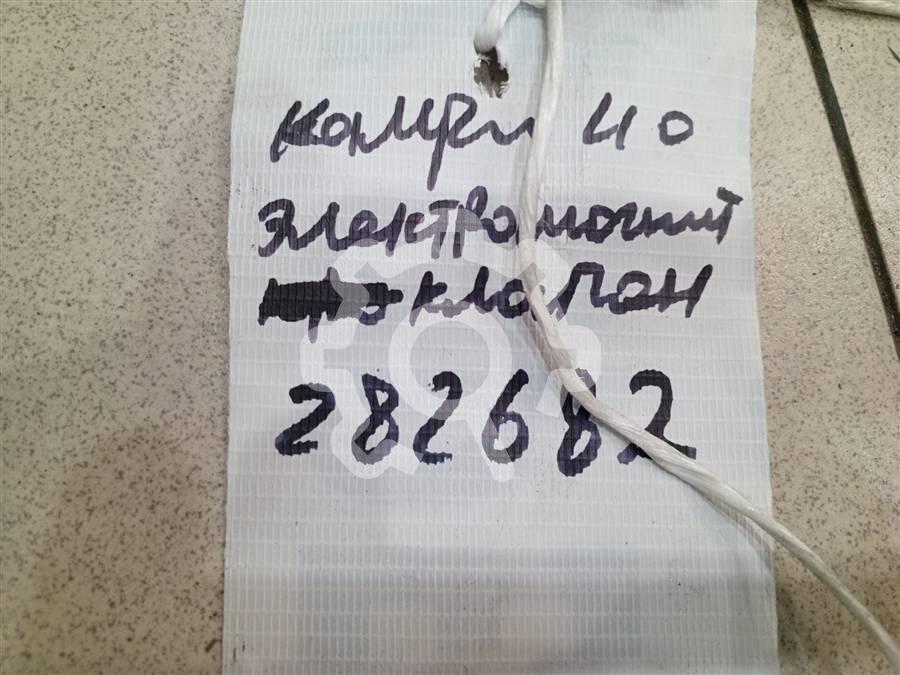 камри 40
электромогний
клапан
282682